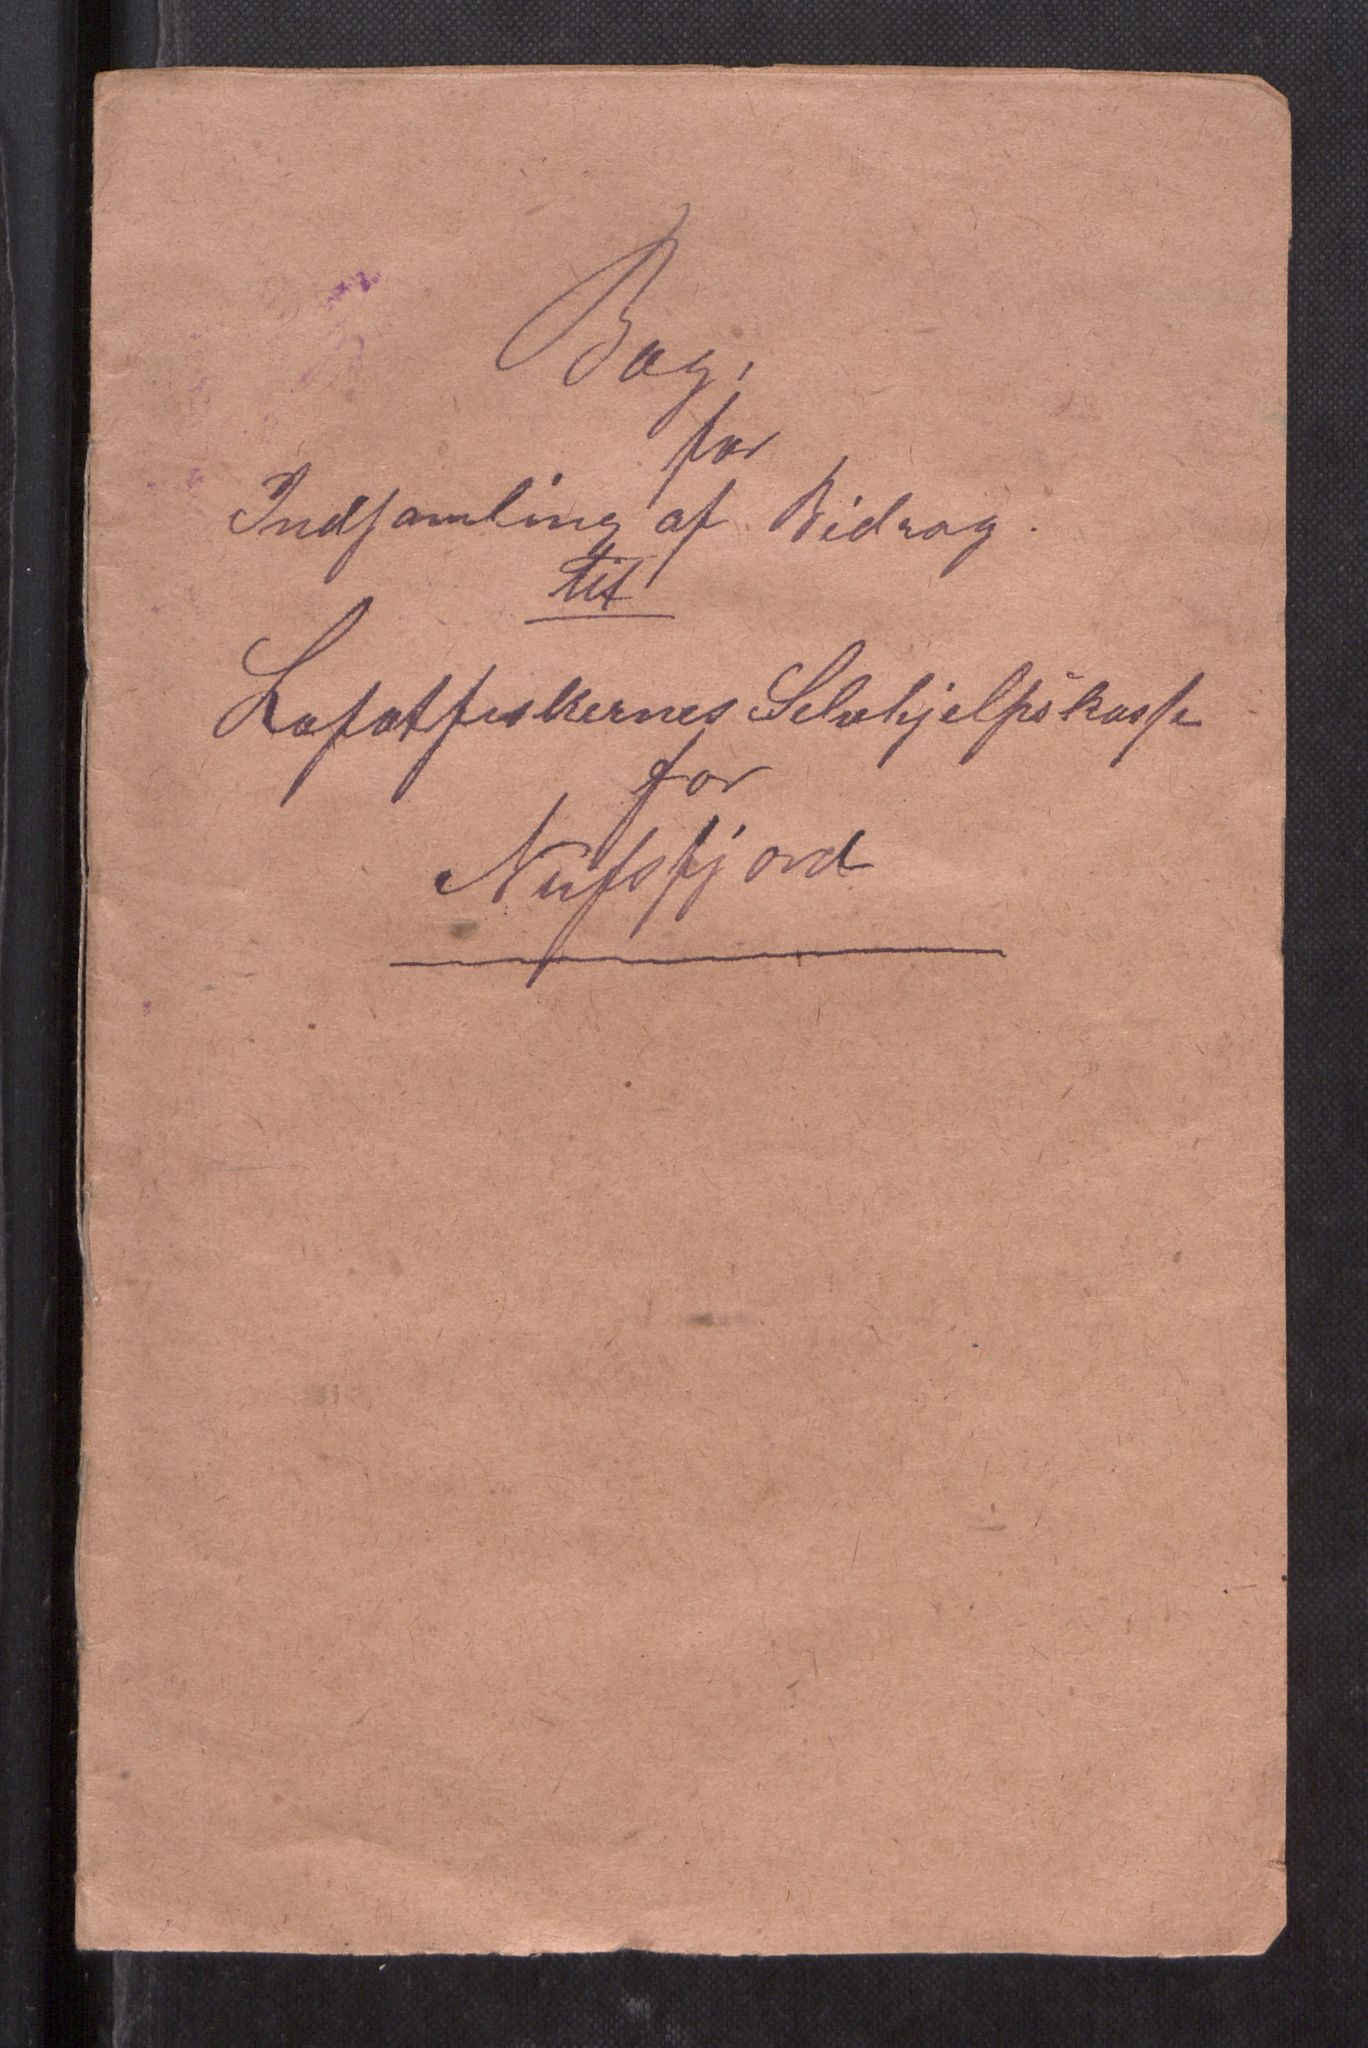 Bog,
for
Indsamling af Bidrag.
til
Lofotfiskernes Selvhjelpskasse
for
Nufsfjord